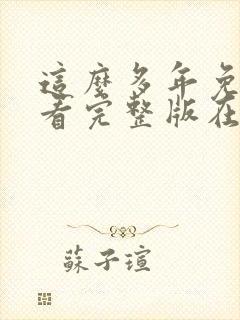 這麼多年免
看完整版在
蘇子瑄